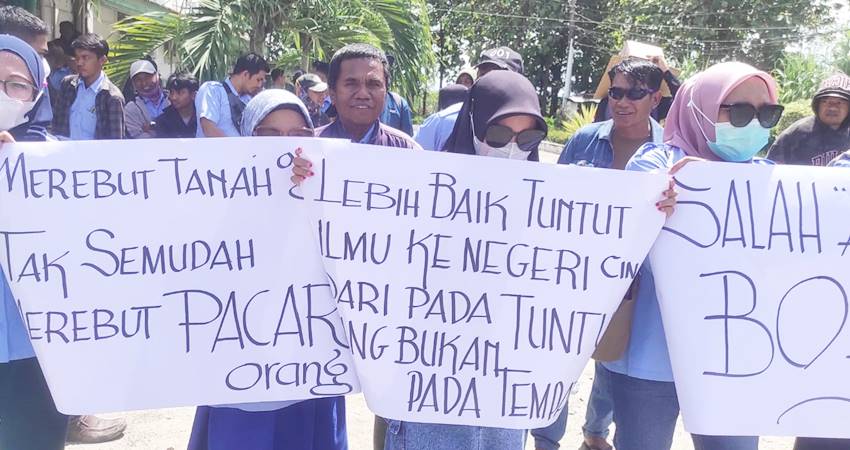 MEREBUT TANAH
TAK SEMUDAH
MEREBUT PACAR
orang
LEBIH BAIK TUNTUT
ILMU KE NEGERI CIN
DARI PADA TUNTU
NG BUKAN
PADA TEMPA
SALAH
BO